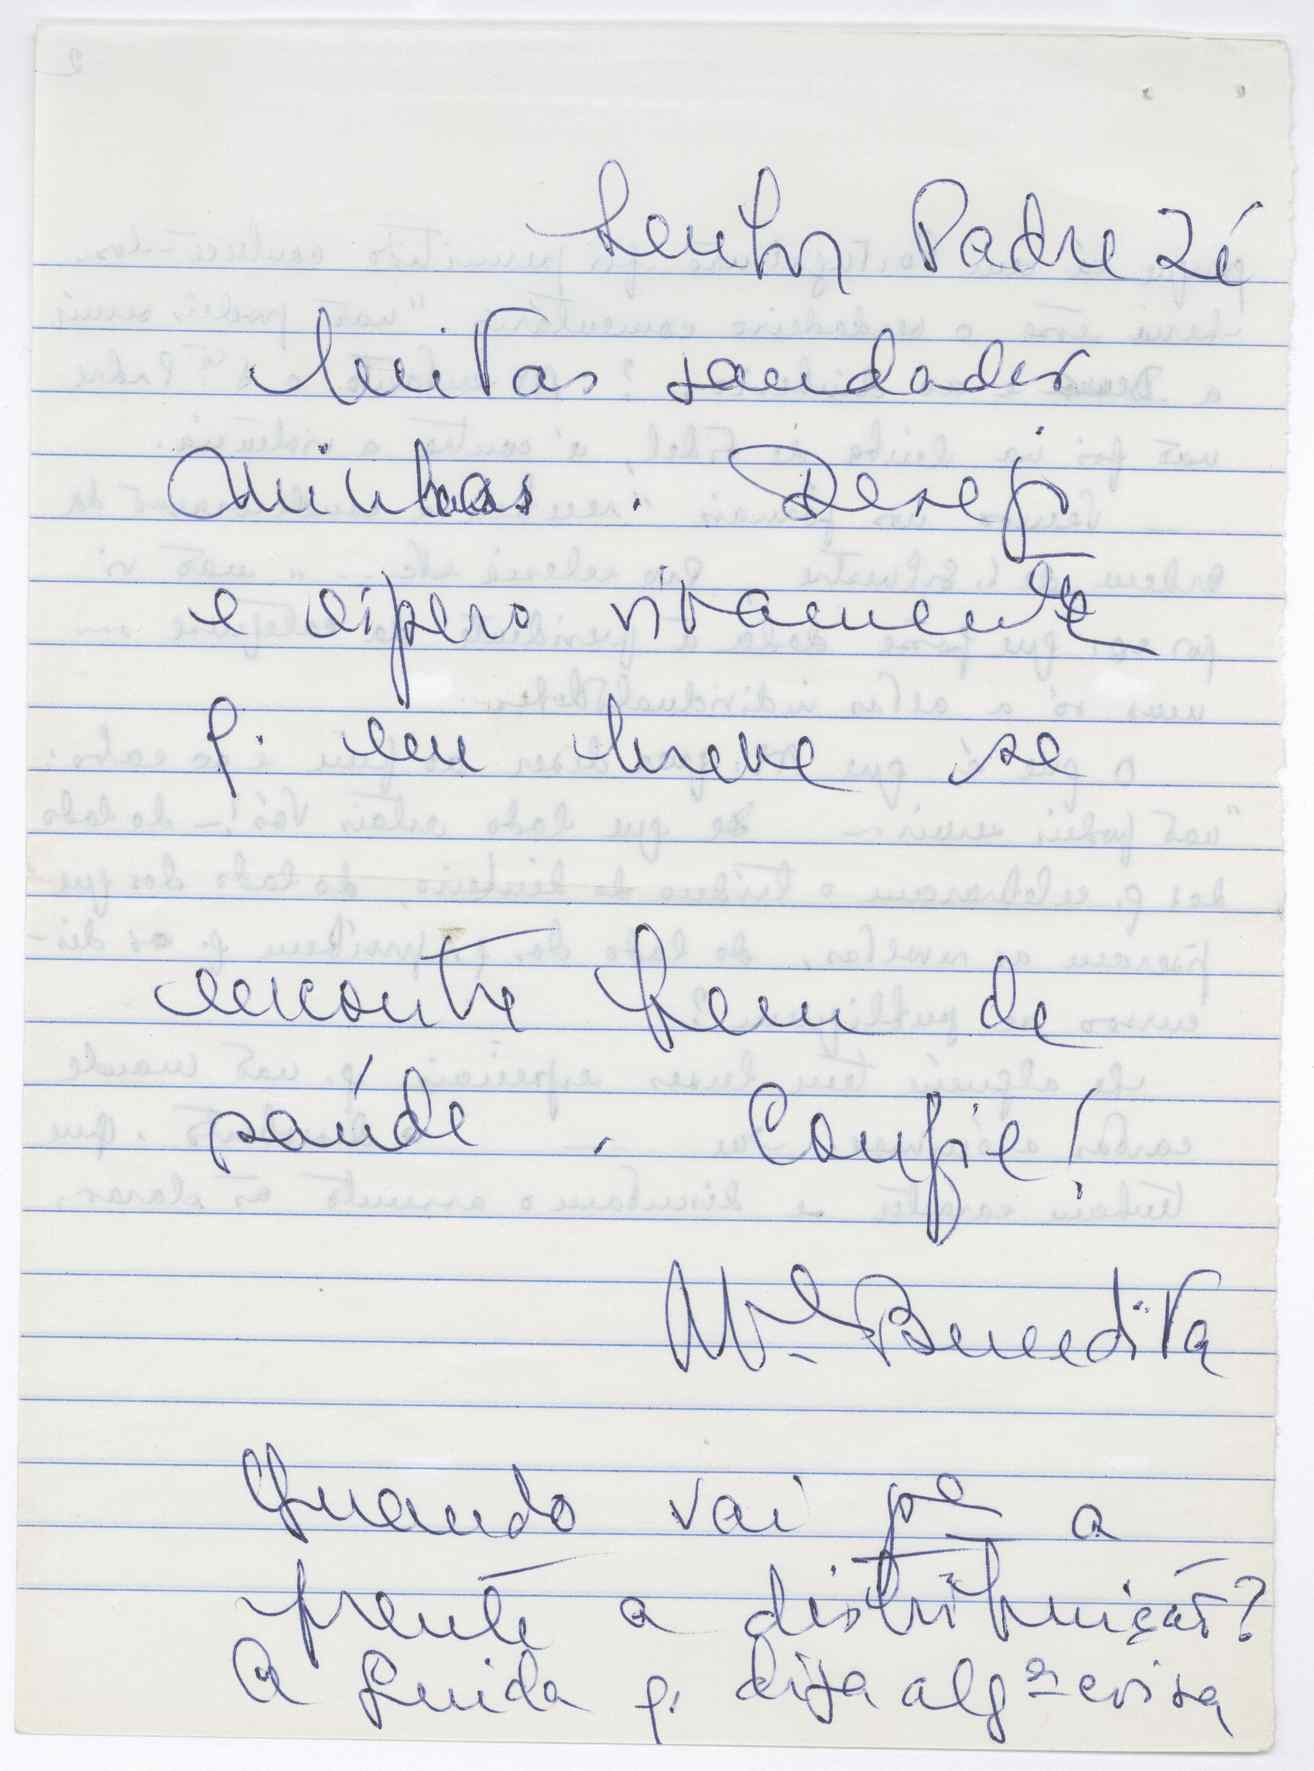 Senhor Padre Zé
Muitas saudades
minhas. Desejo
e espero vivamente
q. em breve se
encontre bem de
saúde. Confie!
Mª Benedita
Quando vai pª a
frente a distribuição?
A Guida q. diga alg. coisa